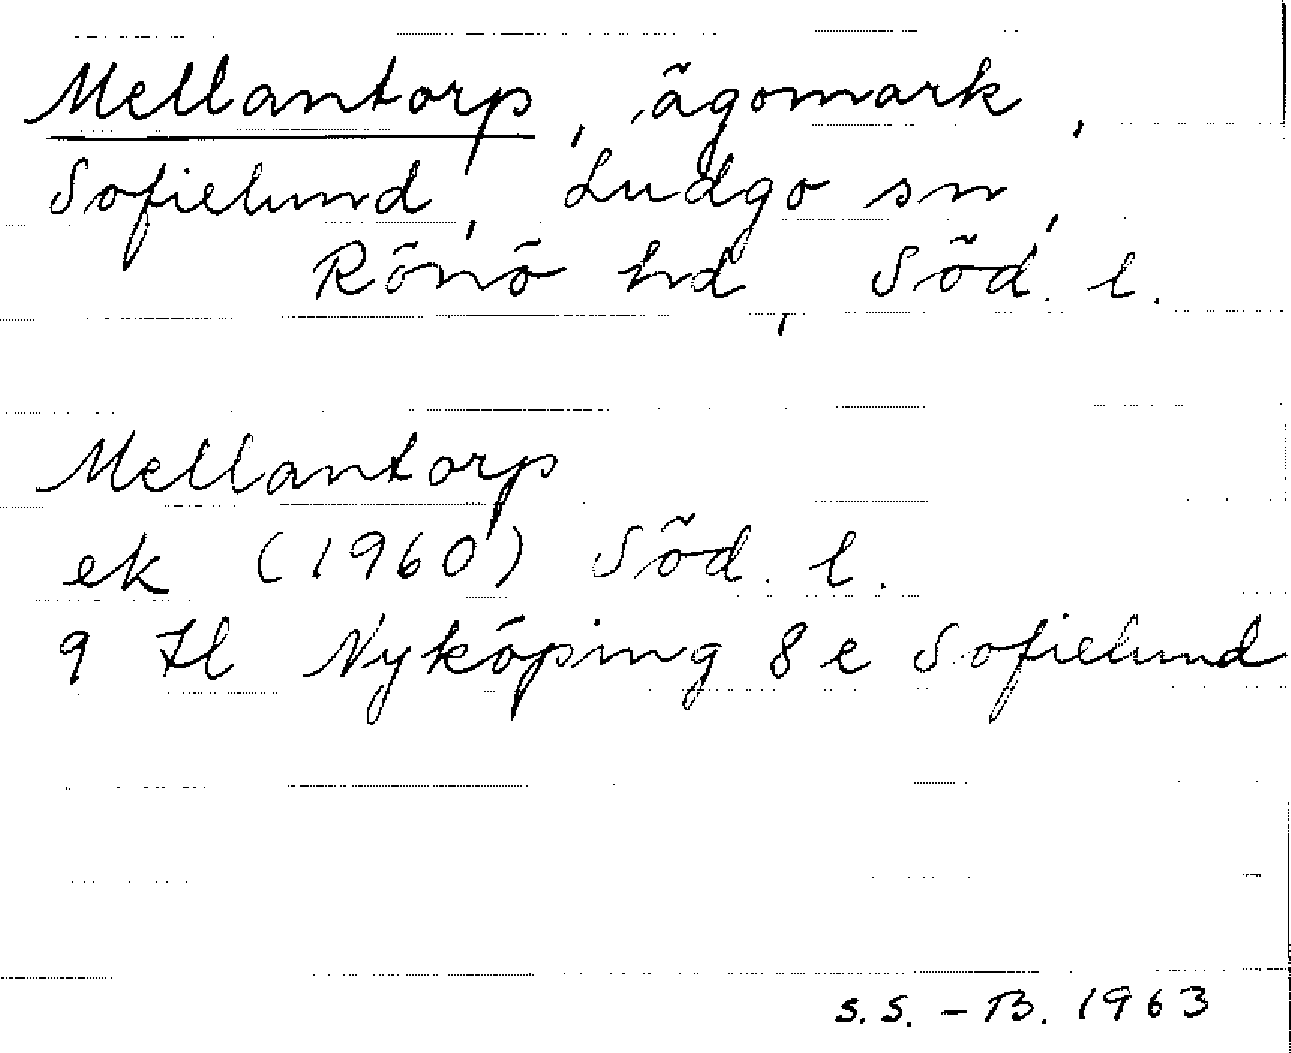 Mellantorp, ägomark,
Sofielund, Ludgo sn,
Rönö hd, Söd. l.
Mellantorp
ek (1960) Söd. l.
9 Il Nyköping 8 e Sofielund
S.S. - B. 1963